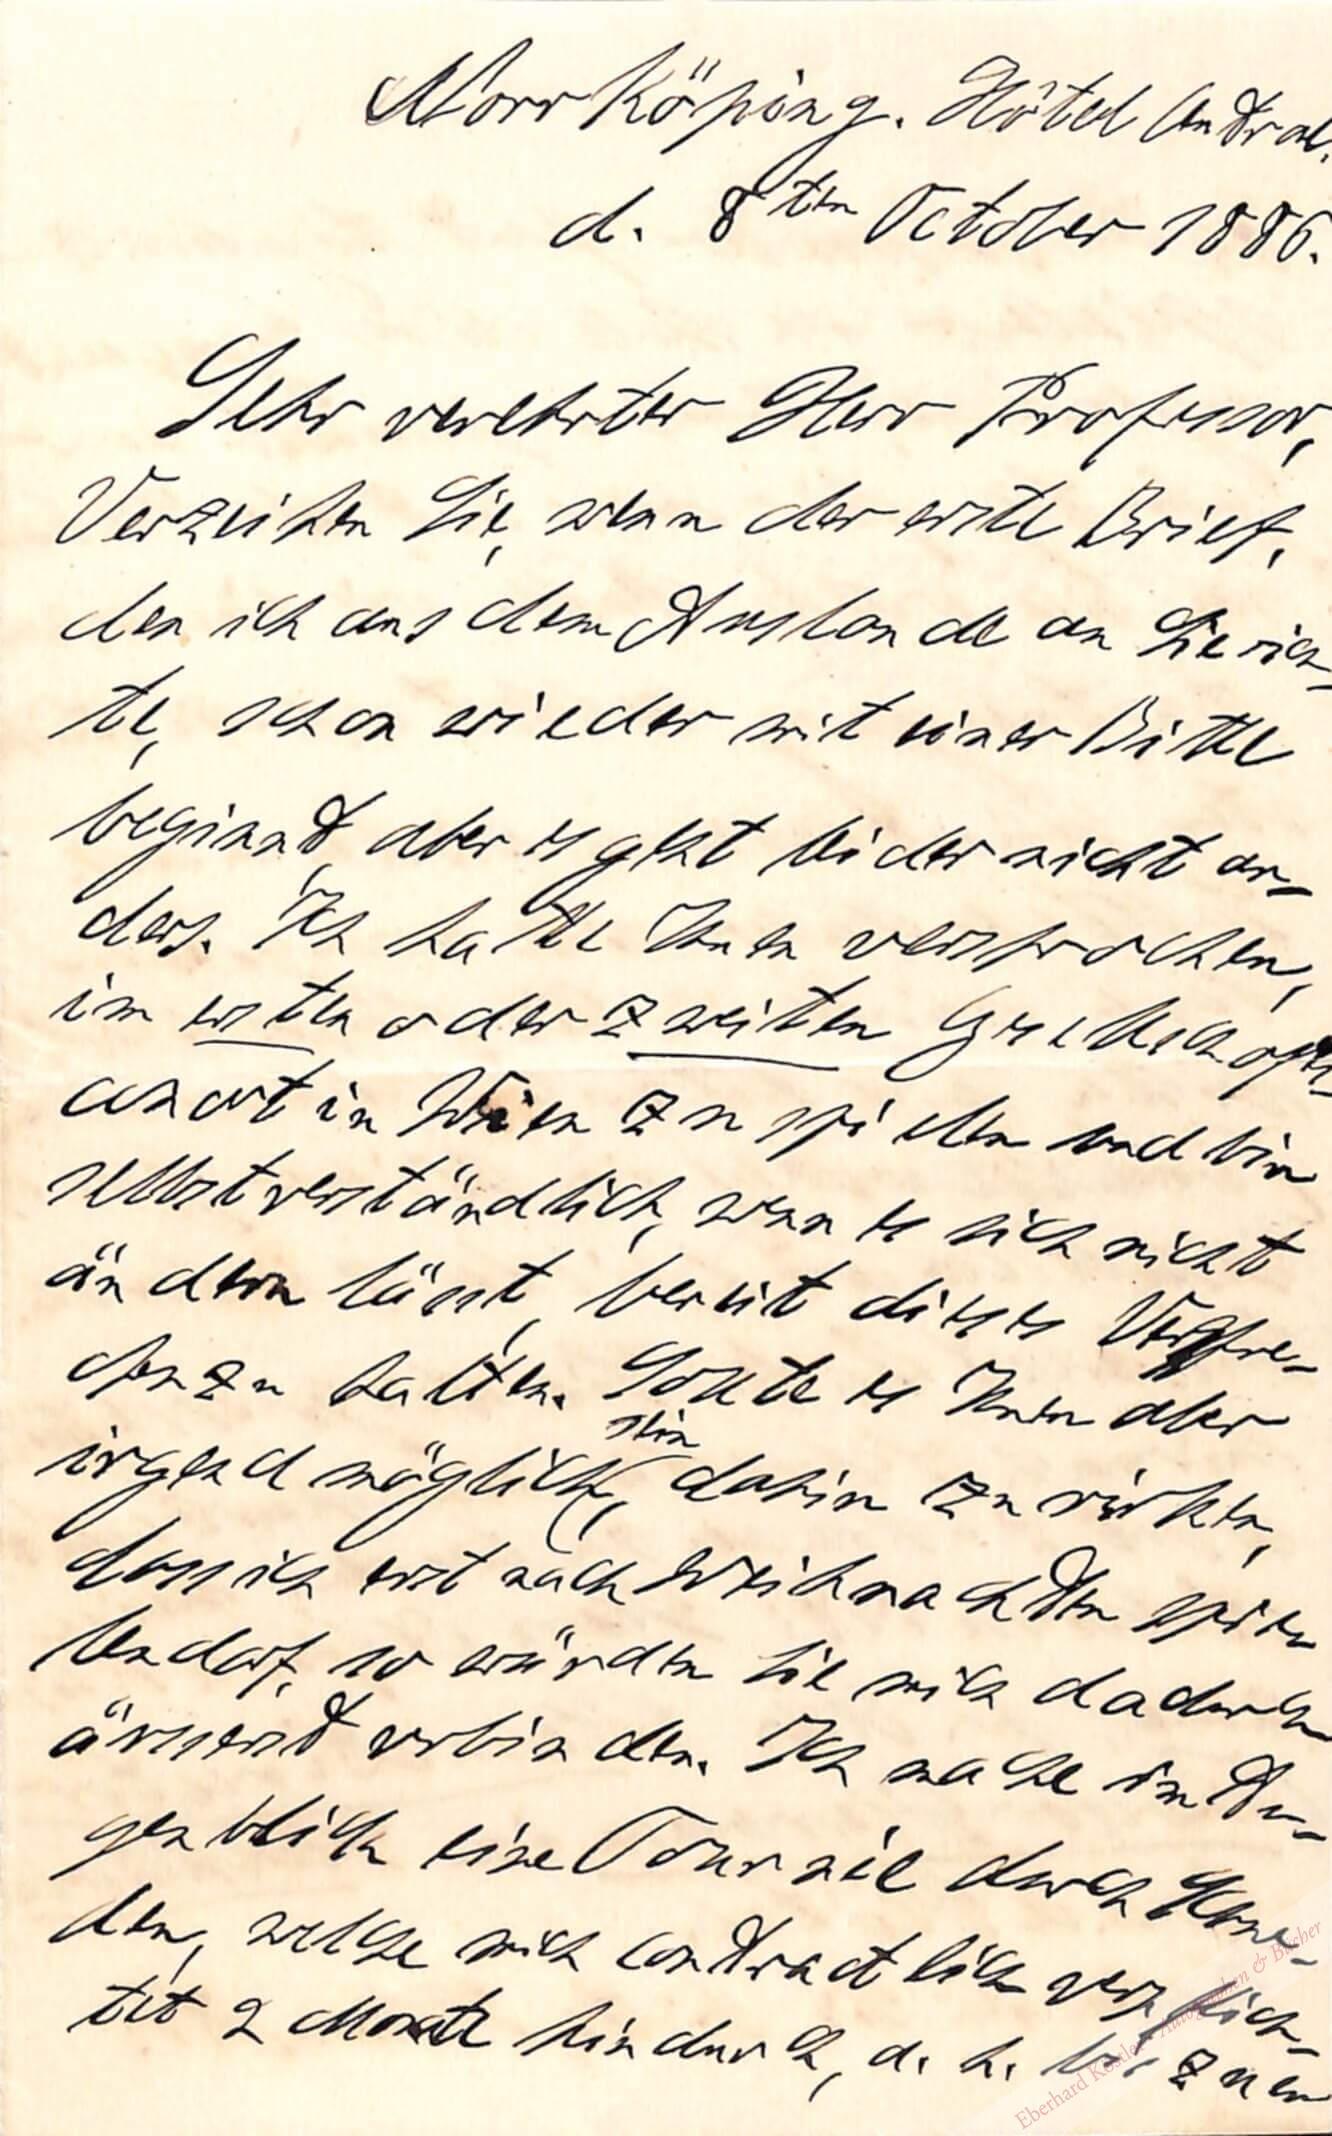 Norrköping. Hôtel Central.
d. 8ten October 1886.
Sehr verehrter Herr Professor,
Verzeihen Sie, wenn der erste Brief,
den ich aus dem Auslande an Sie rich-
te, schon wieder mit einer Bitte
beginnt, aber es geht leider nicht an-
ders. Ich hatte Ihnen versprochen,
im ersten oder zweiten Gesellschafts-
concert in Wien zu spielen und bin
selbstverständlich, wenn es sich nicht
ändern lässt, bereit dieses Verspre-
chen zu halten. Sollte es Ihnen aber
irgend möglich sein, dahin zu wirken,
dass ich erst nach Weihnachten spie-
len darf, so würden Sie mich dadurch
äusserst verbinden. Ich mache im Au-
genblick eine Tournée durch Schwe-
den, welche mich contractlich verpflich-
tet 2 Monate hindurch, d. h. bis zum
Eberhard Köstler Autographen & Bücher